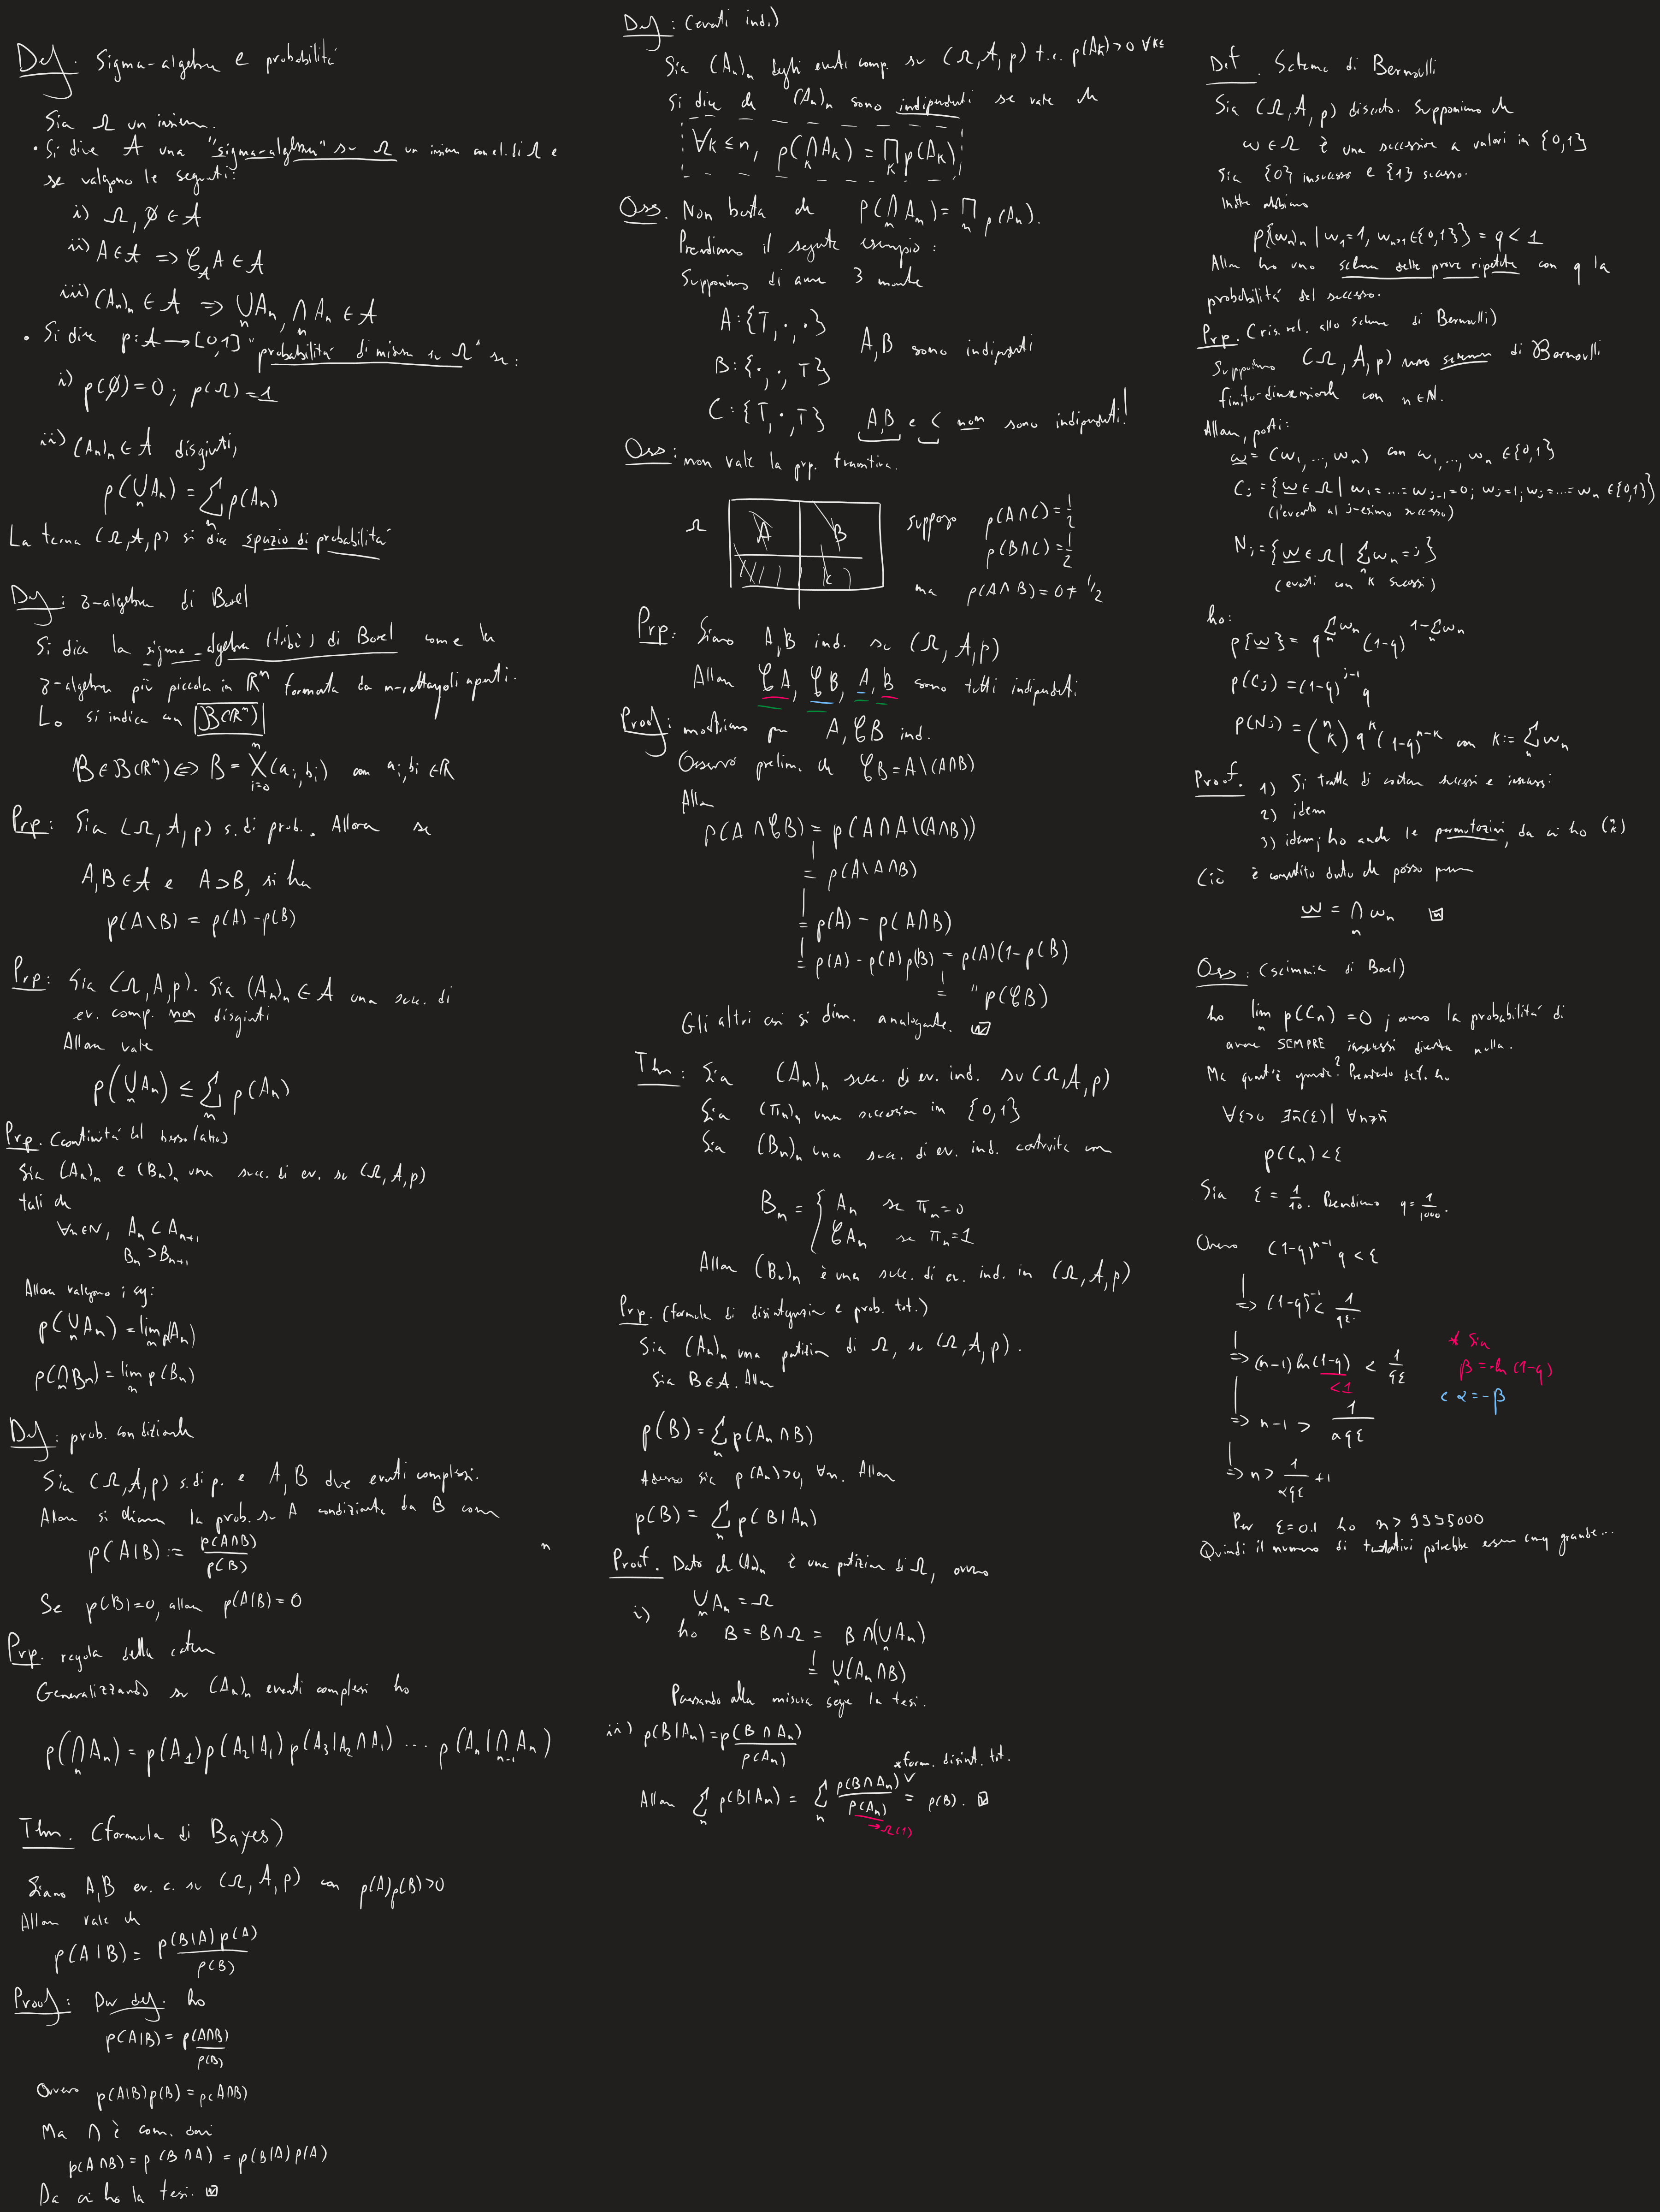 Def. Sigma-algebra e probabilità
Sia Ω un insieme.
• Si dice A una "sigma-algebra" su Ω un insieme con el. di Ω e
se valgono le seguenti:
i) Ω, ∅ ∈ A
ii) A ∈ A ⇒ C_A A ∈ A
iii) (An)n ∈ A ⇒ ⋃n An, ⋂n An ∈ A
• Si dice p: A → [0,1] "probabilità di misura su Ω" se:
i) p(∅)=0; p(Ω)=1
ii) (An)n ∈ A disgiunti,
p(⋃n An) = ∑n p(An)
La terna (Ω,A,p) si dice spazio di probabilità
Def: σ-algebra di Borel
Si dice la sigma-algebra (tribù) di Borel come la
σ-algebra più piccola in ℝ^n formata da n-rettangoli aperti.
Lo si indica con B(ℝ^n)
B ∈ B(ℝ^n) ⇔ B = X_{i=0}^{n} (ai, bi) con ai, bi ∈ ℝ
Prp: Sia (Ω,A,p) s. di prob. Allora se
A,B ∈ A e A ⊃ B, si ha
p(A\B) = p(A) - p(B)
Prp: Sia (Ω,A,p). Sia (An)n ∈ A una succ. di
ev. comp. non disgiunti
Allora vale
p(⋃n An) ≤ ∑n p(An)
Prp. (continuità dal basso/alto)
Sia (An)n e (Bn)n una succ. di ev. su (Ω,A,p)
tali che
∀n∈N, An ⊂ An+1
Bn ⊃ Bn+1
Allora valgono i seg:
p(⋃n An) = lim n p(An)
p(⋂n Bn) = lim n p(Bn)
Def: prob. condizionale
Sia (Ω,A,p) s. di p. e A,B due eventi complessi.
Allora si chiama la prob. su A condizionata da B come
p(A|B) := p(A∩B)/p(B)
n
Se p(B)=0, allora p(A|B)=0
Prp. regola della catena
Generalizzando su (An)n eventi complessi ho
p(⋂n An) = p(A1) p(A2|A1) p(A3|A2∩A1) ... p(An|⋂n-1 An)
Thm. (formula di Bayes)
Siano A,B ev. c. su (Ω,A,p) con p(A)p(B)>0
Allora vale che
p(A|B) = p(B|A)p(A)/p(B)
Proof: Per def. ho
p(A|B) = p(A∩B)/p(B)
Ovvero p(A|B)p(B) = p(A∩B)
Ma ∩ è com.
p(A∩B) = p(B∩A) = p(B|A)p(A)
Da cui ho la tesi.
Def: (eventi ind.)
Sia (An)n degli eventi comp. su (Ω,A,p) t.c. p(Ak)>0 ∀k≤
Si dice che (An)n sono indipendenti se vale che
∀k≤n, p(⋂k Ak) = ∏k p(Ak)
Oss. Non basta che p(⋂n An) = ∏n p(An).
Prendiamo il seguente esempio:
Supponiamo di avere 3 monete
A:{T,·,·}
A,B sono indipendenti
B:{·,·,T}
C:{T,·,T} A,B e C non sono indipendenti!
Oss: non vale la prp. transitiva.
Ω A B C
suppongo p(A∩C)=1/2
p(B∩C)=1/2
ma p(A∩B)=0≠1/2
Prp: Siano A,B ind. su (Ω,A,p)
Allora CA, CB, A, B sono tutti indipendenti
Proof: mostriamo per A, CB ind.
Osservo prelim. che CB=A\(A∩B)
Allora
p(A∩CB) = p(A∩A\(A∩B))
= p(A\A∩B)
= p(A) - p(A∩B)
= p(A) - p(A)p(B) = p(A)(1-p(B)
= " p(CB)
Gli altri casi si dim. analogamente.
Thm: Sia (An)n succ. di ev. ind. su (Ω,A,p)
Sia (πn)n una successione in {0,1}
Sia (Bn)n una succ. di ev. ind. costruita come
Bn = { An se πn=0
CAn se πn=1
Allora (Bn)n è una succ. di ev. ind. in (Ω,A,p)
Prp. (formula di disintegrazione e prob. tot.)
Sia (An)n una partizione di Ω, su (Ω,A,p).
Sia B∈A. Allora
p(B) = ∑n p(An∩B)
Adesso sia p(An)>0, ∀n. Allora
p(B) = ∑n p(B|An)
Proof. Dato che (An)n è una partizione di Ω, ovvero
⋃n An = Ω
i) ho B = B∩Ω = B∩(⋃n An)
= ⋃n(An∩B)
Passando alla misura segue la tesi.
ii) p(B|An) = p(B∩An)/p(An)
*form. disint. tot.
Allora ∑n p(B|An) = ∑n p(B∩An)/p(An) = p(B).
→Ω(1)
Def. Schema di Bernoulli
Sia (Ω,A,p) discreto. Supponiamo che
ω∈Ω è una successione a valori in {0,1}
Sia {0} insuccesso e {1} successo.
Inoltre abbiamo
p{ωn)n | ω1=1, ωn>1∈{0,1}} = q < 1
Allora ho uno schema delle prove ripetute con q la
probabilità del successo.
Prp. (ris. rel. allo schema di Bernoulli)
Supponiamo (Ω,A,p) uno schema di Bernoulli
finito-dimensionale con n∈N.
Allora, posti:
ω = (ω1,...,ωn) con ω1,...,ωn ∈{0,1}
Cj = {ω∈Ω | ω1=...=ωj-1=0; ωj=1; ωj=...=ωn ∈{0,1}}
(l'evento al j-esimo successo)
Nj = {ω∈Ω | ∑n ωn = j}
(eventi con k successi)
ho:
p{ω} = q^{∑n ωn} (1-q)^{1-∑n ωn}
p(Cj) = (1-q)^{j-1} q
p(Nj) = (n k) q^k (1-q)^{n-k} con k:= ∑n ωn
Proof. 1) Si tratta di contare successi e insuccessi
2) idem
3) idem; ho anche le permutazioni, da cui ho (n k)
Ciò è consentito dato che posso porre
ω = ⋂n ωn
Oss: (scimmia di Borel)
ho lim n p(Cn) = 0; ovvero la probabilità di
avere SEMPRE insuccessi diventa nulla.
Ma quant'è grande? Prendendo def. ho
∀ε>0 ∃n̄(ε)| ∀n≥n̄
p(Cn)<ε
Sia ε = 1/10. Prendiamo q = 1/1000.
Ovvero (1-q)^{n-1} q < ε
⇒ (1-q)^{n-1} < 1/qε.
⇒ (n-1) ln(1-q) < 1/qε
<1
* Sia
β = -ln(1-q)
e α = -β
⇒ n-1 > 1/αqε
⇒ n > 1/αqε + 1
Per ε=0.1 ho n > 9995000
Quindi il numero di tentativi potrebbe essere molto grande...